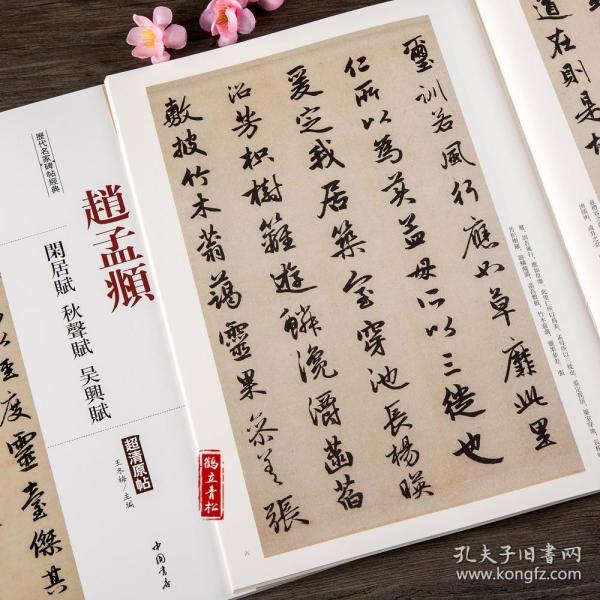 道在則是
璽訓若風行應如草靡此里
仁所以為美孟母所以三徙也
爰定我居築室穿池長楊映
沼芳枳樹籬遊鱗瀺灂菡萏
敷披竹木蓊藹靈果參差張
六
歷代名家碑帖經典
趙孟頫
閑居賦 秋聲賦 吴興賦
超清原帖
王冬梅/主編
中國書店
度靈臺傑其
鶴立青松
孔夫子旧书网
www.kongfz.com